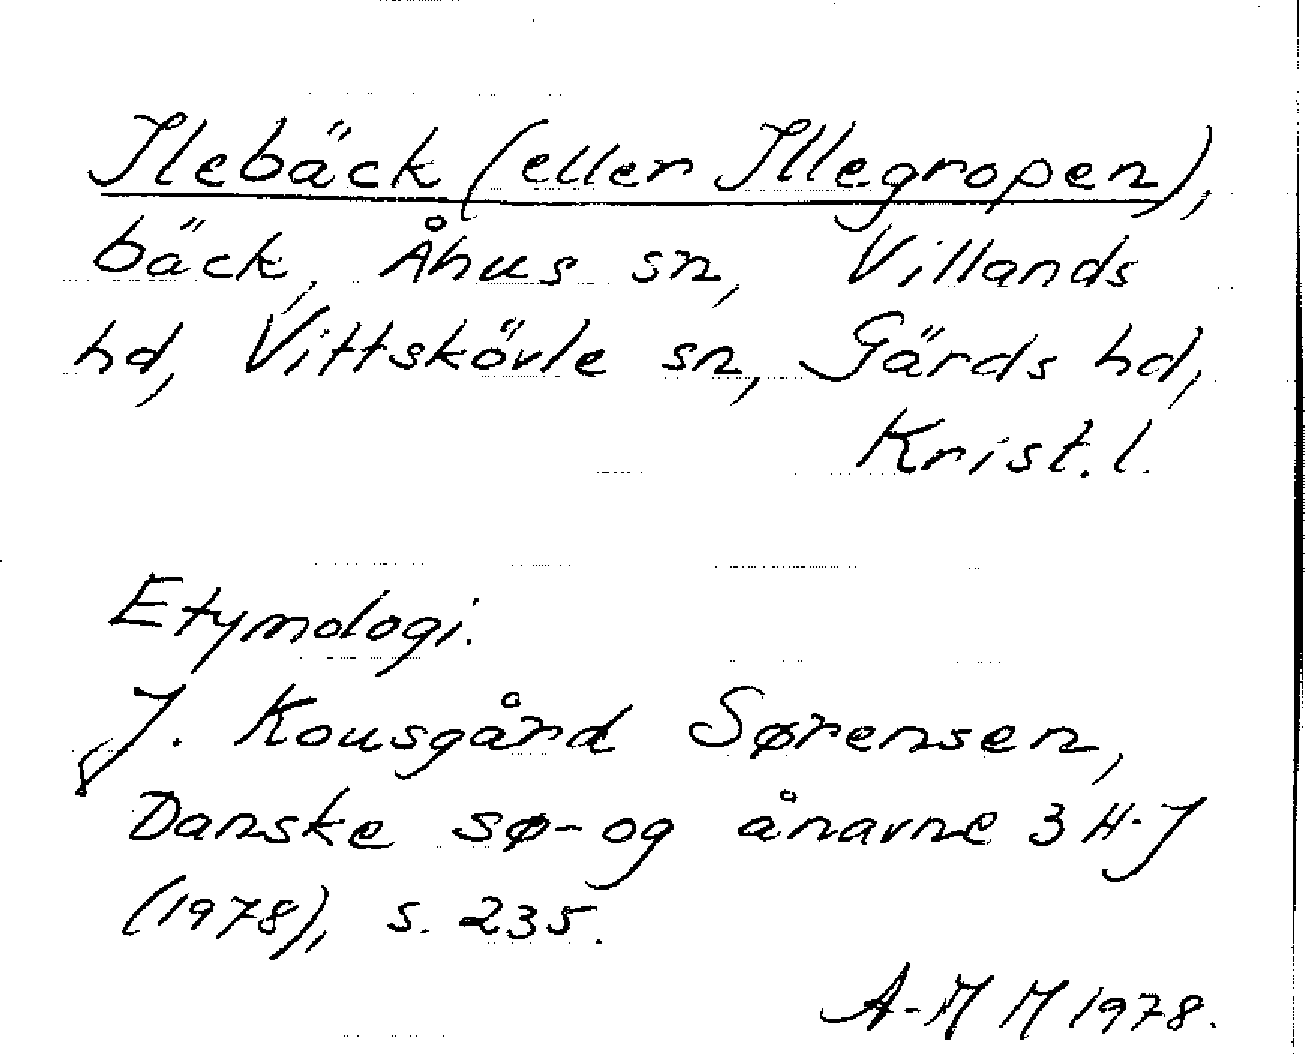 Ilebäck (eller Illegropen),
bäck, Åhus sn, Villands
hd, Vittskövle sn, Gärds hd,
Krist. l.
Etymologi.
J. Kousgård Sørensen,
Danske sø- og ånavne 3 H-J
(1978), s. 235.
A-M M 1978.